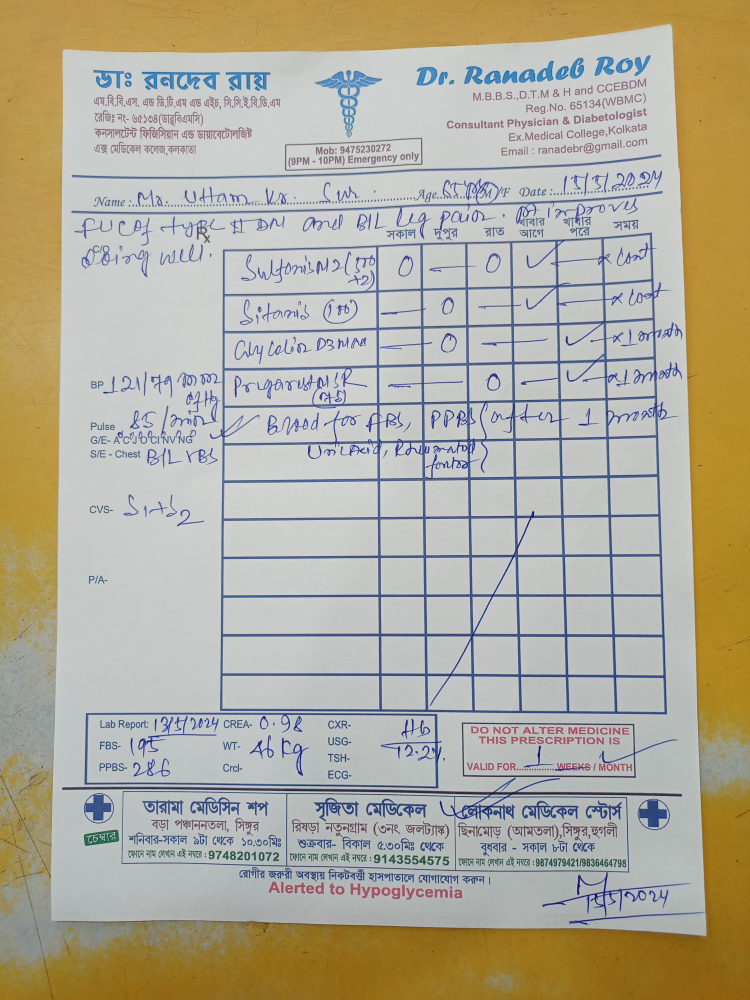 ডাঃ রনদেব রায়
এম.বি.বি.এস. এন্ড ডি.টি.এম এন্ড এইচ, সি.সি.ই.বি.ডি.এম
রেজিঃ নং- ৬৫১৩৪(ডাব্লুবিএমসি)
কনসালটেন্ট ফিজিসিয়ান এন্ড ডায়াবেটোলজিষ্ট
এক্স মেডিকেল কলেজ,কলকাতা
Mob: 9475230272
(9PM - 10PM) Emergency only
Dr. Ranadeb Roy
M.B.B.S.,D.T.M & H and CCEBDM
Reg.No. 65134(WBMC)
Consultant Physician & Diabetologist
Ex.Medical College,Kolkata
Email : ranadebr@gmail.com
Name : Mr. Uttam Kr. Sur Age M/F Date : 15/5/2024
FUC of type II DM and B/L leg pain. improves
C/O doing well.
Rx
সকাল দুপুর রাত খাবার আগে খাবার পরে সময়
(500+2) 0 — 0 ✓ — x cont
(100) — 0 — ✓ — x cont
D3 — 0 — — ✓ x 1 month
(75) — — 0 — ✓ x 1 month
Blood for FBS, PPBS after 1 month
Uric Acid, Rheumatoid factor
BP 121/79 mm of Hg
Pulse 85/min
G/E- A C J O CI NV NG
S/E - Chest B/L VBS
CVS- S1+S2
P/A-
Lab Report: 13/5/2024 CREA- 0.98 CXR- Hb
FBS- 195 WT- 46 kg USG- 12.2%
TSH-
PPBS- 286 Crcl- ECG-
DO NOT ALTER MEDICINE
THIS PRESCRIPTION IS
VALID FOR 1 WEEKS / MONTH
চেম্বার
তারামা মেডিসিন শপ
বড়া পঞ্চাননতলা, সিঙ্গুর
শনিবার-সকাল ৯টা থেকে ১০.৩০মিঃ
ফোনে নাম লেখান এই নম্বরে : 9748201072
সৃজিতা মেডিকেল
রিষড়া নতুনগ্রাম (৩নং জলট্যাঙ্ক)
শুক্রবার- বিকাল ৫.৩০মিঃ থেকে
ফোনে নাম লেখান এই নম্বরে : 9143554575
লোকনাথ মেডিকেল স্টোর্স
ছিনামোড় (আমতলা),সিঙ্গুর,হুগলী
বুধবার - সকাল ৮টা থেকে
ফোনে নাম লেখান এই নম্বরে : 9874979421/9836464798
রোগীর জরুরী অবস্থায় নিকটবর্ত্তী হাসপাতালে যোগাযোগ করুন।
Alerted to Hypoglycemia
15/5/2024